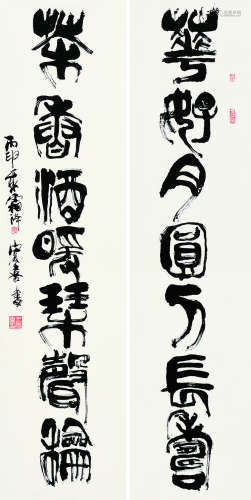 華好月圓人長壽
茶香酒暖琴聲龢
丙申 霜降 書